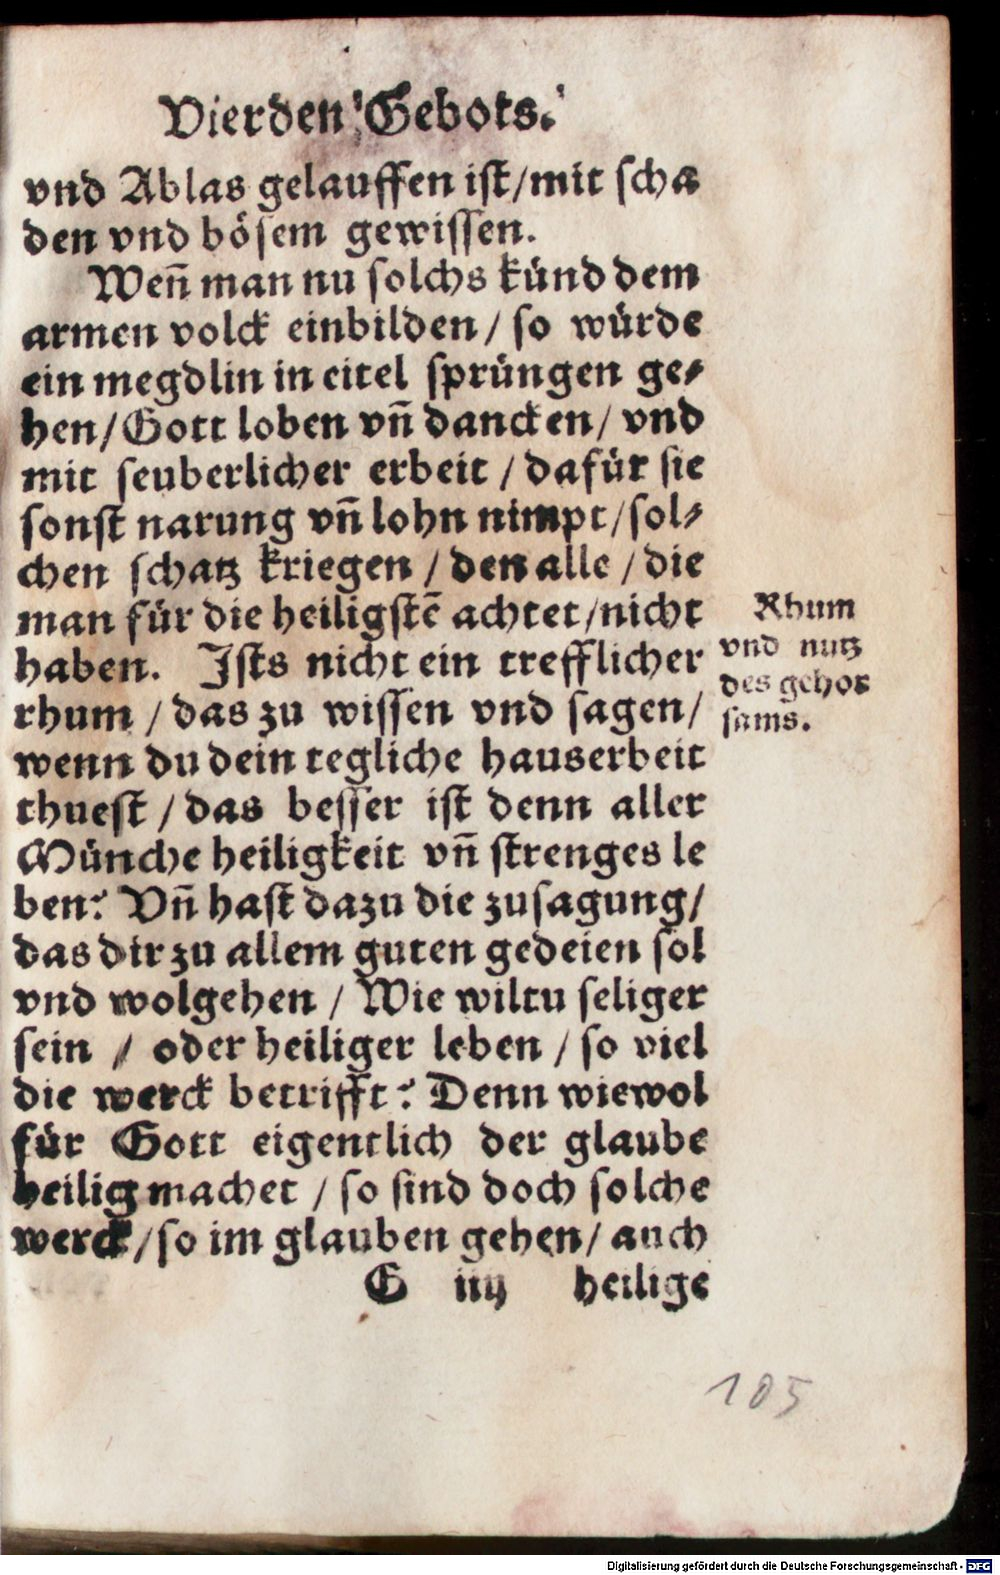 Vierden Gebots.
vnd Ablas gelauffen ist/mit scha
den vnd bösem gewissen.
Weñ man nu solchs künd dem
armen volck einbilden/ so würde
ein megdlin in eitel sprüngen ge⸗
hen/Gott loben vñ dancken/ vnd
mit seuberlicher erbeit / dafür sie
sonst narung vñ lohn nimpt/sol⸗
chen schatz kriegen / den alle / die
man für die heiligstē achtet/nicht
haben. Ists nicht ein trefflicher
rhum / das zu wissen vnd sagen/
wenn du dein tegliche hauserbeit
thuest / das besser ist denn aller
Münche heiligkeit vñ strenges le
ben? Vñ hast dazu die zusagung/
das dir zu allem guten gedeien sol
vnd wolgehen / Wie wiltu seliger
sein / oder heiliger leben / so viel
die werck betrifft? Denn wiewol
für Gott eigentlich der glaube
heilig machet / so sind doch solche
werck/so im glauben gehen/ auch
G iiij heilige
Rhum
vnd nutz
des gehor
sams.
105
Digitalisierung gefördert durch die Deutsche Forschungsgemeinschaft - DFG